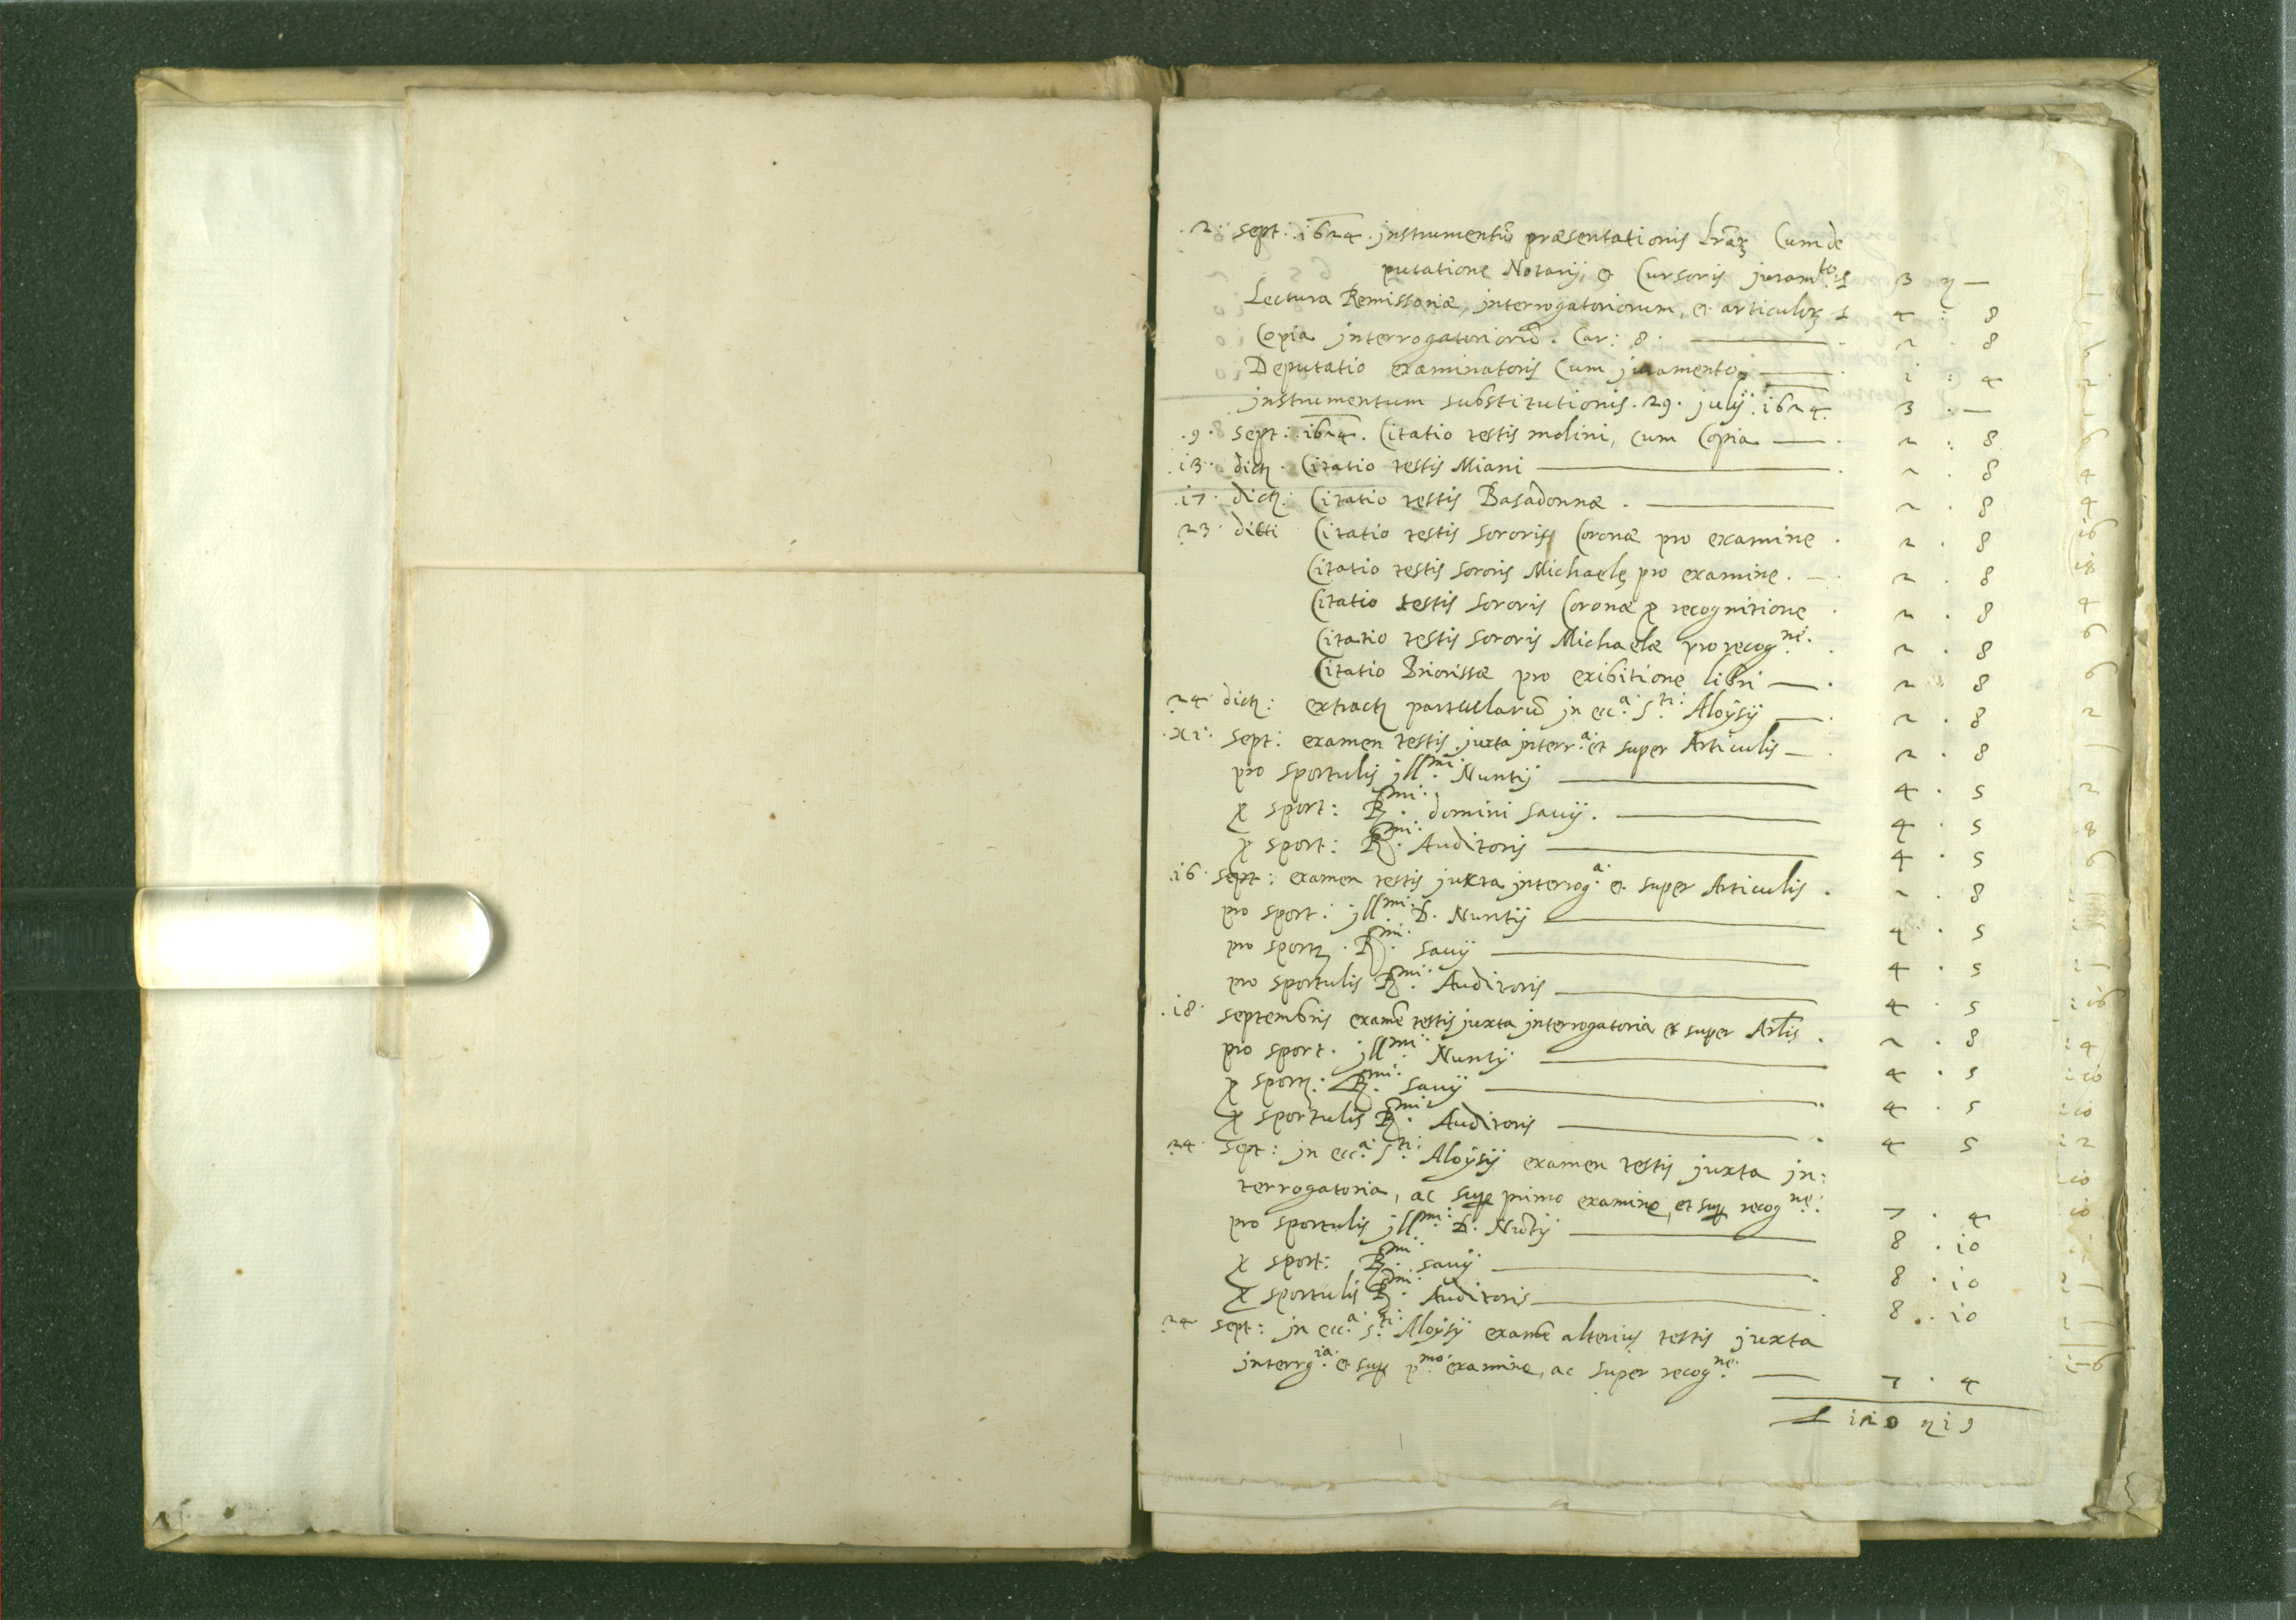 .2. sept: 1624. jnstrumentũ præsentationis lrãrꝫ Cum de
putatione Notarij, et Cursoris juramto: £ 3 ꝫ —
Lectura Remissoriæ, jnterrogatoriorum, et articulorꝫ £ 4 : 8
Copia jnterrogatoriorũ. Car: 8. — 2 . 8
Deputatio examinatoris Cum juramento — i : 4
jnstrumentum substitutionis. 29. julij. 1624. 3 . —
.9. sept: 1624. Citatio testis molini, cum Copia — 2 : 8
.i3. dictꝫ. Citatio testis Miani — 2 . 8
.i7. dictꝫ: Citatio testis Basadonnæ . — 2 . 8
23. dicti Citatio testis sororis Coronæ pro examine . 2 . 8
Citatio testis sororis Michaelę pro examine. — 2 . 8
Citatio testis sororis Coronæ ꝓ recognitione . 2 . 8
Citatio testis sororis Michaelæ pro recogne: . 2 . 8
Citatio Priorissæ pro exibitione libri — . 2 . 8
24 dictꝫ: extractꝫ particularũ jn ecca: Sti: Aloÿsij — . 2 . 8
.xi. sept: examen testis juxta jnterra: et super Articulis — . 2 . 8
pro sportulis jllmi: Nuntij — 4 . 5
ꝓ sport: Rmi: domini savij. — 4 . 5
ꝓ sport: Rmi: Auditoris — 4 . 5
.i6. sept: examen testis juxta jnterroga: et super Articulis . 2 . 8
pro sport: jllmi: D. Nuntij — 4 . 5
pro sportꝫ. Rmi: savij — 4 . 5
pro sportulis Rmi: Auditoris — 4 . 5
.i8. septembris examẽ testis juxta jnterrogatoria et super Artlis . 2 . 8
pro sport. jllmi: Nuntij — 4 . 5
ꝓ sportꝫ: Rmi: savij — . 4 . 5
ꝓ sportulis Rmi: Auditoris — . 4 5
24. sept: jn ecca: Sti: Aloÿsij examen testis juxta jn:
terrogatoria, ac suꝑ primo examine, et suꝑ recogne: 7 . 4
pro sportulis jllmi: D. Nũtij — 8 . i0
ꝓ sport: Rmi: savij — . 8 . i0
ꝓ sportulis Rmi: Auditoris — . 8 . i0
24 sept: jn ecca: Sti: Aloÿsij examẽ alterius testis juxta
jnterrgia: et suꝑ pmo: examine, ac super recogne: — 7 . 4
£ i20 ꝫ i9